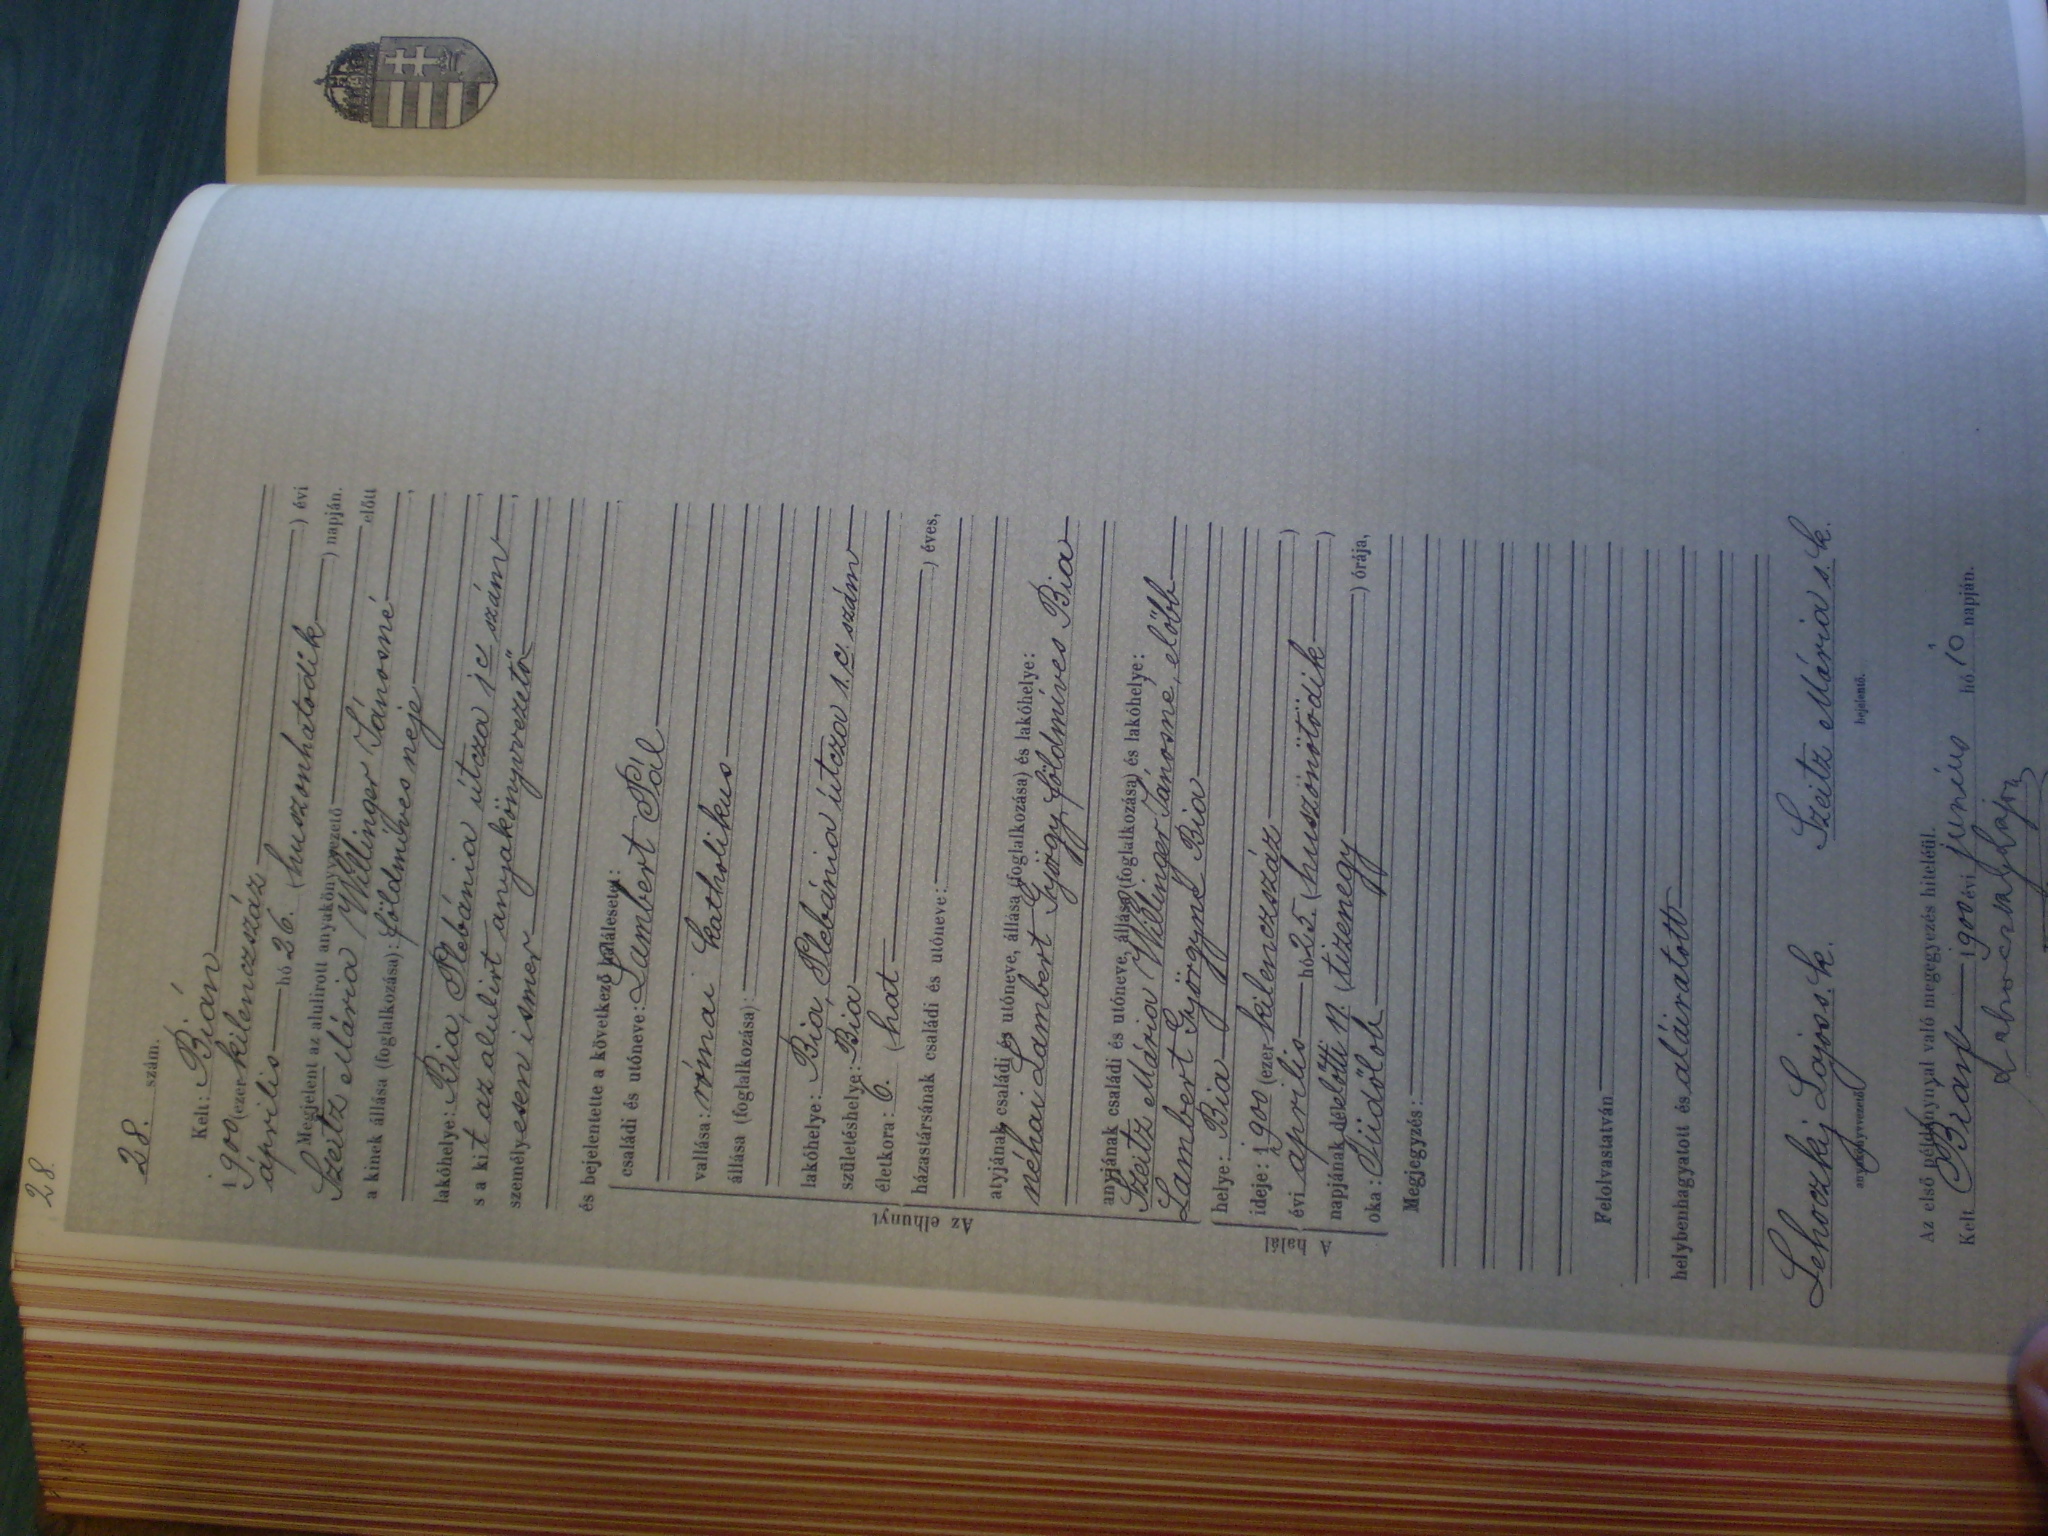 28.
28. szám.
Kelt: Bián
1900 (ezer kilenczszáz) évi
április hó 26. (huszonhatodik) napján.
Megjelent az alulirott anyakönyvvezető előtt
Szeitz Mária Willinger Jánosné
a kinek állása (foglalkozása): földmíves neje,
lakóhelye: Bia, Plebánia útcza 1 c szám,
s a kit az alulirt anyakönyvvezető,
személyesen ismer
és bejelentette a következő halálesetet:
Az elhunyt
családi és utóneve: Lambert Pál
vallása: római katholikus
állása (foglalkozása):
lakóhelye: Bia, Plebánia útcza 1. c. szám
születéshelye: Bia
életkora: 6. (hat) éves,
házastársának családi és utóneve:
atyjának családi és utóneve, állása (foglalkozása) és lakóhelye:
néhai Lambert György földmíves Bia
anyjának családi és utóneve, állása (foglalkozása) és lakóhelye:
Szeitz Mária Willinger Jánosné, előbb
Lambert Györgyné Bia
A halál
helye: Bia
ideje: 1900 (ezer kilenczszáz)
évi aprilis hó 25. (huszönötödik)
napjának délelőtti 11. (tizenegy) órája,
oka: Tüdőlob
Megjegyzés:
Felolvastatván
helybenhagyatott és aláiratott
Lehoczkj Lajos s. k. Szeitz Mária s. k.
anyakönyvvezető bejelentő.
Az első példánynyal való megegyzés hiteléül.
Kelt Bian 1900 évi június hó 10 napján.